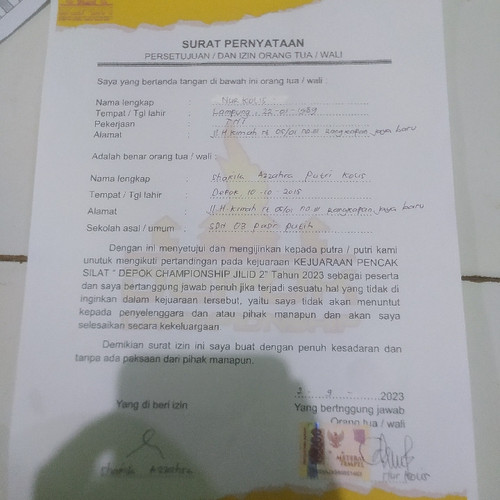 SURAT PERNYATAAN
PERSETUJUAN / DAN IZIN ORANG TUA / WALI
Saya yang bertanda tangan di bawah ini orang tua / wali :
Nama lengkap : Nur Kolis
Tempat / Tgl lahir : Lampung, 22-01-1989
Pekerjaan
Alamat : Jl. H. Kimah rt 05/01 no. Rangkapan jaya baru
Adalah benar orang tua / wali :
Nama lengkap : Shakila Azzahra Putri Kolis
Tempat / Tgl lahir : Depok, 10-10-2015
Alamat : Jl. H. Kimah rt 05/01 no. Rangkapan jaya baru
Sekolah asal / umum : SDN 03 Pasir putih
Dengan ini menyetujui dan mengijinkan kepada putra / putri kami
unutuk mengikuti pertandingan pada kejuaraan KEJUARAAN PENCAK
SILAT " DEPOK CHAMPIONSHIP JILID 2" Tahun 2023 sebagai peserta
dan saya bertanggung jawab penuh jika terjadi sesuatu hal yang tidak di
inginkan dalam kejuaraan tersebut, yaitu saya tidak akan menuntut
kepada penyelenggara dan atau pihak manapun dan akan saya
selesaikan secara kekeluargaan
Demikian surat izin ini saya buat dengan penuh kesadaran dan
tanpa ada paksaan dari pihak manapun.
2023
Yang di beri izin
Yang bertnggung jawab
Orang tua / wali
METERAI
TEMPEL
Shakila Azzahra
Nur Kolis